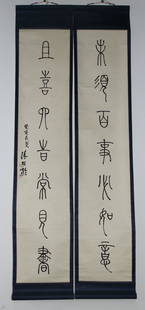 未須百事必如意
且喜四時常見書